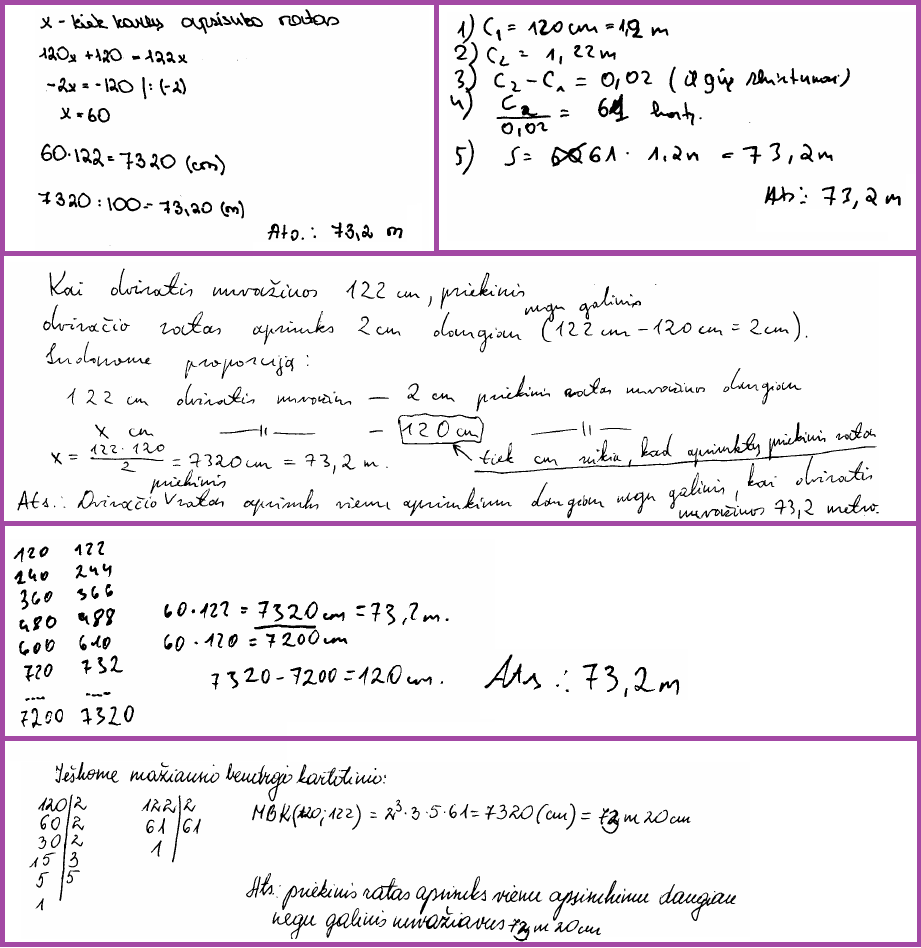 x - kiek kartų apsisuko ratas
120x + 120 = 122x
-2x = -120 |: (-2)
x = 60
60·122 = 7320 (cm)
7320 : 100 = 73,20 (m)
Ats.: 73,2 m
1) C₁ = 120 cm = 1,2 m
2) C₂ = 1, 22 m
3) C₂ - C₁ = 0,02 (ilgių skirtumas)
4) C₂/0,02 = 61 kart.
5) S = 61 · 1,2m = 73,2m
Ats: 73,2 m
Kai dviratis nuvažiuos 122 cm, priekinis
dviračio ratas apsisuks 2cm daugiau negu galinis (122 cm - 120 cm = 2cm).
Sudarome proporciją:
122 cm dviratis nuvažiuos — 2 cm priekinis ratas nuvažiuos daugiau
x cm —||— — 120 cm —||—
x = 122·120/2 = 7320 cm = 73,2 m. tiek cm reikia, kad apsisuktų priekinis ratas
Ats.: Dviračio priekinis ratas apsisuks vienu apsisukimu daugiau negu galinis, kai dviratis
nuvažiuos 73,2 metro.
120 122
240 244
360 366
480 488
600 610
720 732
.... ....
7200 7320
60·122 = 7320 cm = 73,2 m.
60 · 120 = 7200 cm
7320 - 7200 = 120 cm.
Ats.: 73,2 m
Ieškome mažiausio bendrojo kartotinio:
120|2
60|2
30|2
15|3
5|5
1
122|2
61|61
1|
MBK(120; 122) = 2³·3·5·61 = 7320 (cm) = 73 m 20 cm
Ats: priekinis ratas apsisuks vienu apsisukimu daugiau
negu galinis nuvažiavus 73 m 20 cm